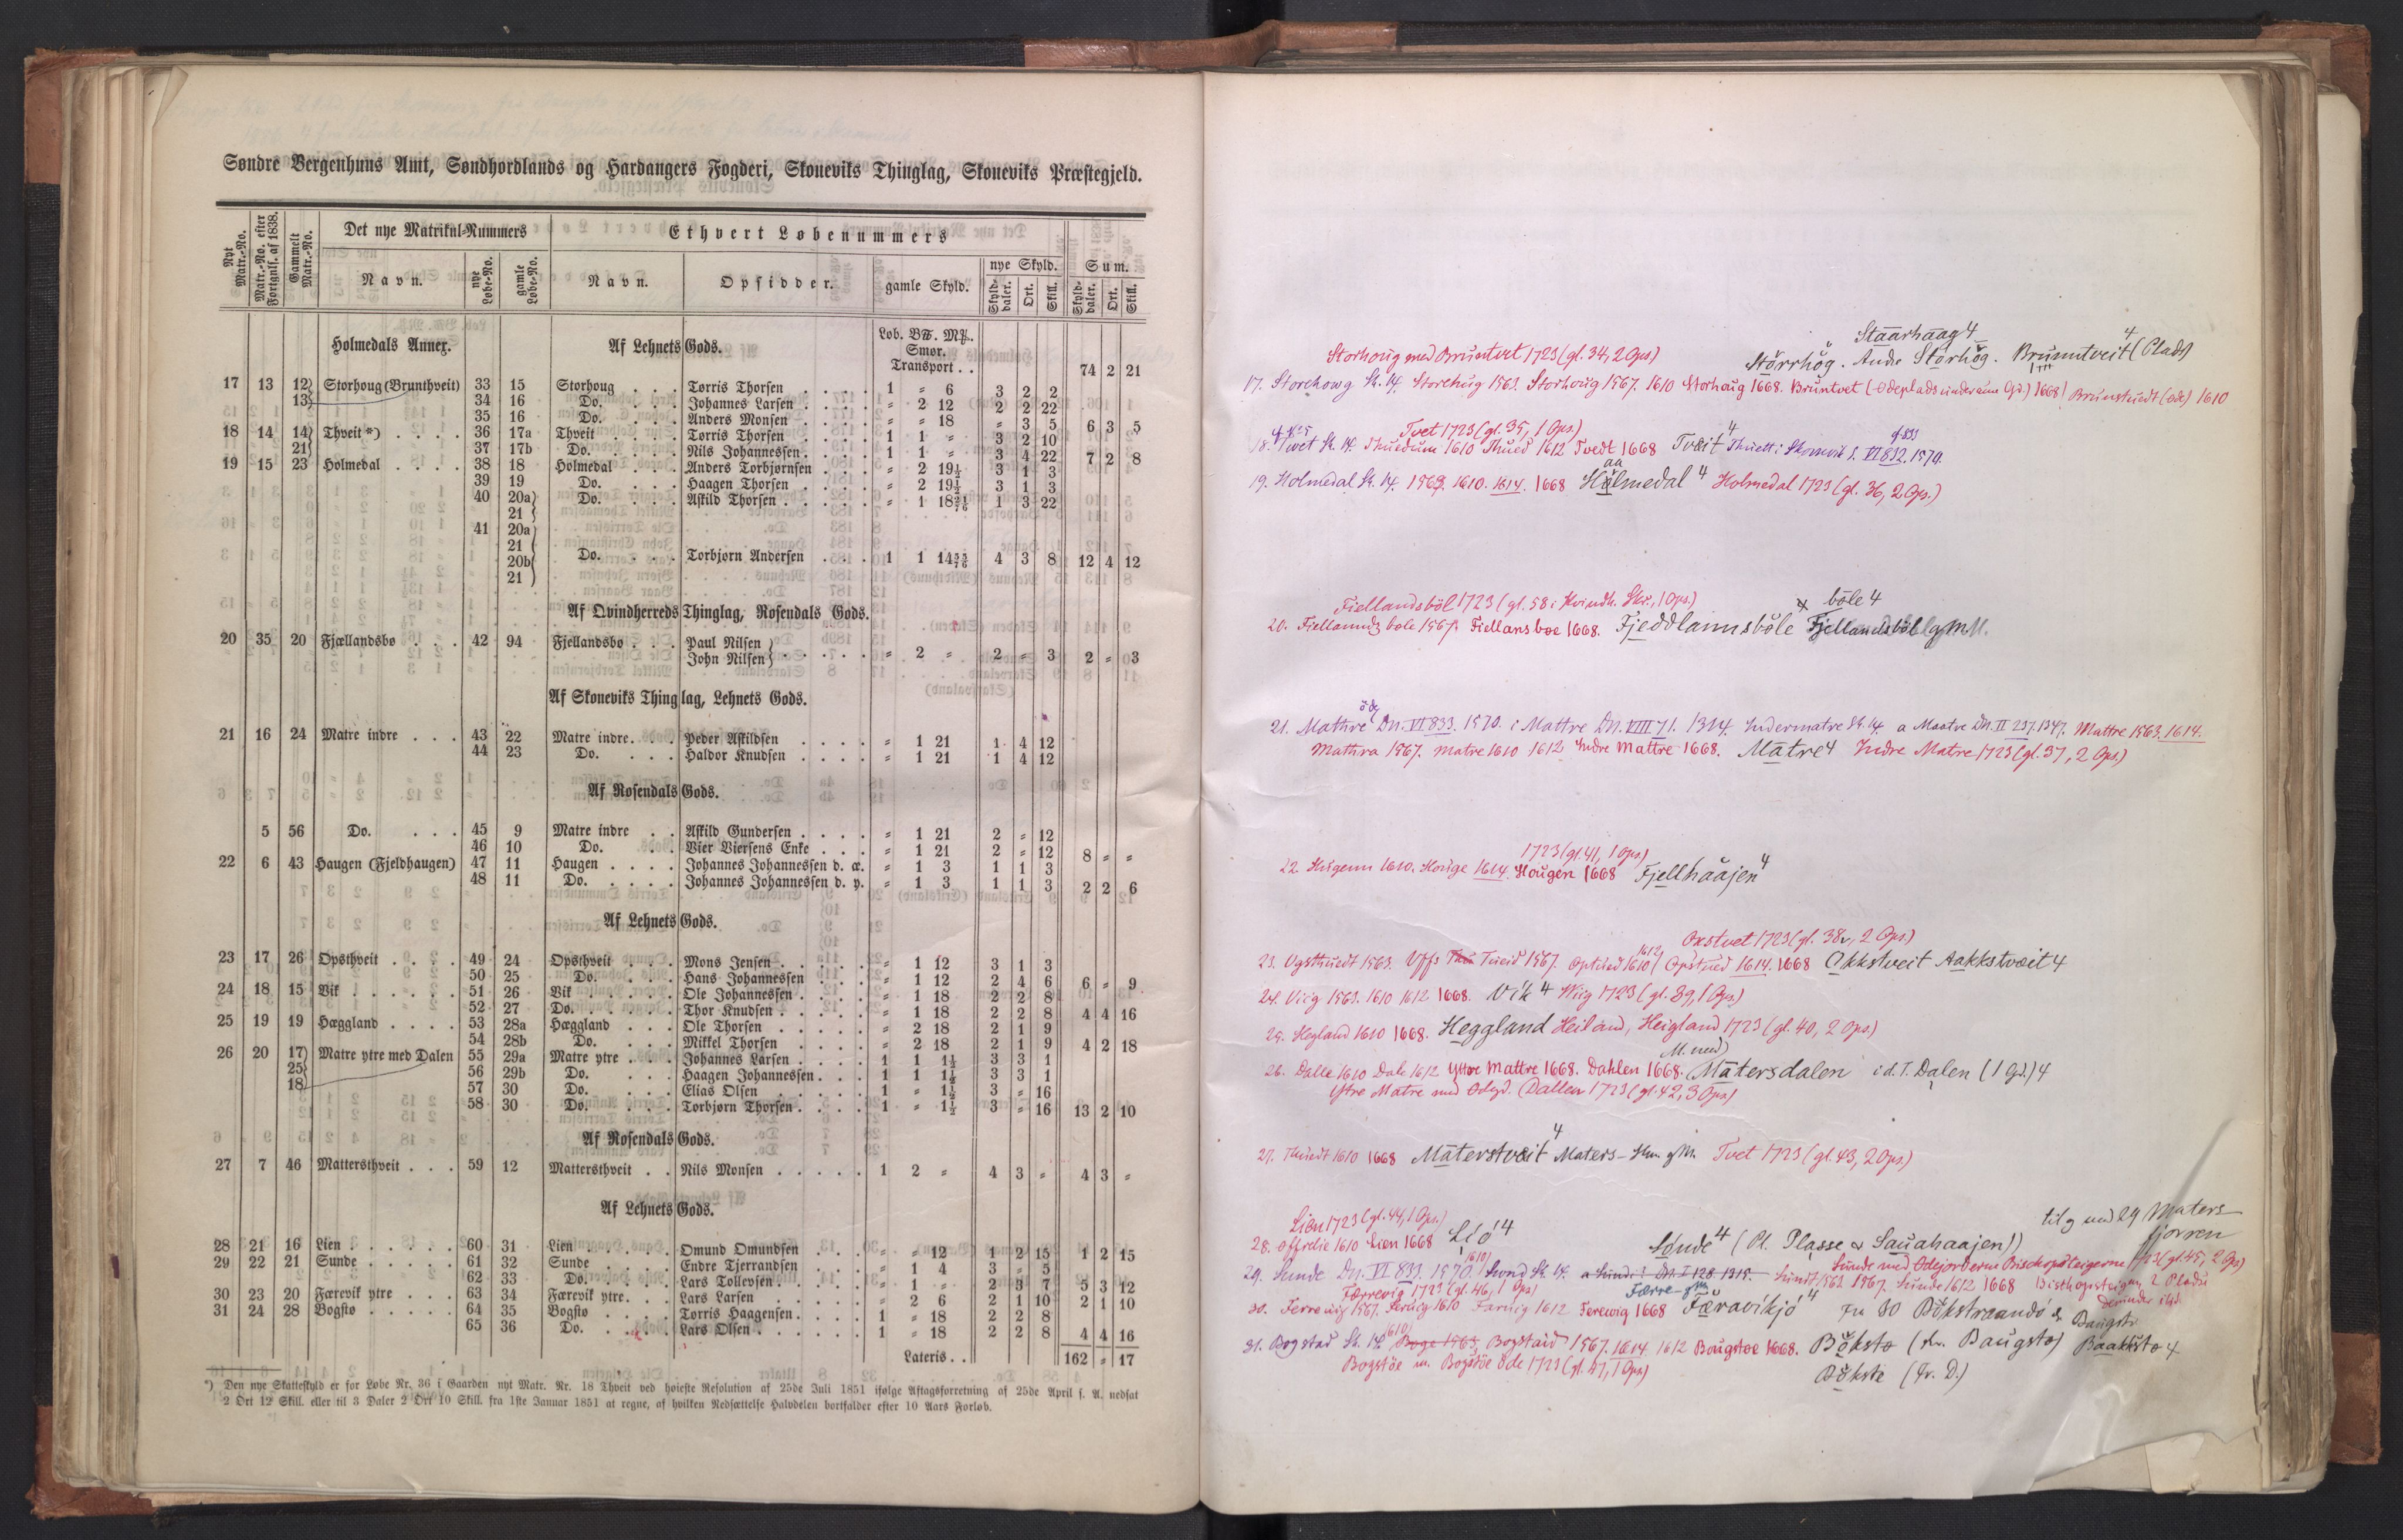 Søndre Bergenhuus Amt, Søndhordlands og Hardangers Fogderi, Skoneviks Thinglag, Skoneviks Præstegjeld.
Nyt Matr.-No. Matr.-No. efter Fortgnls. af 1838. Gammelt Matr.-No. Det nye Matrikul-Nummers Ethvert Løbenummers
Navn. nye Løbe-No. gamle Løbe-No. Navn. Opsidder. gamle Skyld. nye Skyld. Sum.
Skylddaler. Ort. Skill. Skylddaler. Ort. Skill.
Holmedals Annex. Af Lehnets Gods. Løb. B℔. M℔.
Smør.
Transport . . 74 2 21
17 13 12 Storhoug (Brunthveit) 33 15 Storhoug . . . Torris Thorsen . . . . 1 " 6 3 2 2
13 34 16 Do. . . . Johannes Larsen . . . . " 2 12 2 2 22
35 16 Do. . . . Anders Monsen . . . . " " 18 " 3 5 6 3 5
18 14 14 Thveit *) . . . . 36 17a Thveit . . . . Torris Thorsen . . . . 1 1 " 3 2 10
21 37 17b Do. . . . Nils Johannessen . . . . 1 1 " 3 4 22 7 2 8
19 15 23 Holmedal . . . . 38 18 Holmedal . . . Anders Torbjørnsen . . . " 2 19½ 3 1 3
39 19 Do. . . . Haagen Thorsen . . . . " 2 19½ 3 1 3
40 20a Do. . . . Askild Thorsen . . . . " 1 18 1 3 22
21
41 20a
21
20b Do. . . . Torbjørn Andersen . . . 1 1 14 4 3 8 12 4 12
21
Af Qvindherreds Thinglag, Rosendals Gods.
20 35 20 Fjællandsbø . . . 42 94 Fjellandsbø . . . Paul Nilsen
John Nilsen . . . . . " 2 " 2 " 3 2 " 3
Af Skoneviks Thinglag, Lehnets Gods.
21 16 24 Matre indre . . . 43 22 Matre indre . . . Peder Askildsen . . . . " 1 21 1 4 12
44 23 Do. . . . Haldor Knudsen . . . . " 1 21 1 4 12
Af Rosendals Gods.
5 56 Do. . . . 45 9 Matre indre . . Askild Gundersen . . . . " 1 21 2 " 12
46 10 Do. . . . Vier Viersens Enke . . . " 1 21 2 " 12 8 " "
22 6 43 Haugen (Fjeldhaugen) 47 11 Haugen . . . . Johannes Johannessen d. æ. " 1 3 1 1 3
48 11 Do. . . . . Johannes Johannessen d. y. " 1 3 1 1 3 2 2 6
Af Lehnets Gods.
23 17 26 Opsthveit . . . . 49 24 Opsthveit . . . Mons Jensen . . . . . " 1 12 3 1 3
50 25 Do. . . . Hans Johannessen . . . " 1 12 2 4 6 6 " 9
24 18 15 Vik . . . . . . 51 26 Vik . . . . . Ole Johannessen . . . . " 1 18 2 2 8
52 27 Do. . . . . Thor Knudsen . . . . . " 1 18 2 2 8 4 4 16
25 19 19 Hæggland . . . . 53 28a Hæggland . . . Ole Thorsen . . . . . " 2 18 2 1 9
54 28b Do. . . . Mikkel Thorsen . . . . " 2 18 2 1 9 4 2 18
26 20 17 Matre ytre med Dalen 55 29a Matre ytre . . . Johannes Larsen . . . . 1 1 1½ 3 3 1
25 56 29b Do. . . . Haagen Johannesen . . . 1 1 1½ 3 3 1
18 57 30 Do. . . . Elias Olsen . . . . . 1 " 1½ 3 " 16
58 30 Do. . . . Torbjørn Thorsen . . . . 1 " 1½ 3 " 16 13 2 10
Af Rosendals Gods.
27 7 46 Mattersthveit . . . 59 12 Mattersthveit . . Nils Monsen . . . . . 1 2 " 4 3 " 4 3 "
Af Lehnets Gods.
28 21 16 Lien . . . . . . 60 31 Lien . . . . . Omund Omundsen . . . . " " 12 1 2 15 1 2 15
29 22 21 Sunde . . . . . 61 32 Sunde . . . . Endre Tjerrandsen . . . . " 1 4 3 " 5
62 33 Do. . . . . Lars Tollevsen . . . . . " 1 " 2 3 7 5 3 12
30 23 20 Færevik ytre . . . 63 34 Færevik ytre . . . Lars Larsen . . . . . " 2 6 2 1 10 2 1 10
31 24 28 Bogstø . . . . . 64 35 Bogstø . . . . Torris Haagensen . . . . 1 " 18 2 2 8
65 36 Do. . . . . Lars Olsen . . . . . . 1 " 18 2 2 8 4 4 16
Lateris . . 162 " 17
*) Den nye Skatteskyld er for Løbe Nr. 36 i Gaarden nyt Matr. Nr. 18 Thveit ved høieste Resolution af 25de Juli 1851 ifølge Aftagsforretning af 25de April s. A. nedsat
2 Ort 12 Skill. eller til 3 Daler 2 Ort 10 Skill. fra 1ste Januar 1851 at regne, af hvilken Nedsættelse Halvdelen bortfalder efter 10 Aars Forløb.
Staarhaag 4
Storhoug med Bruntvet 1723 (gl. 34, 2 Ops.) Størrhøg. Andr Størhøg. Brunntveit 4 (Plads)
17. Storehowg Sk. 14. Storehug 1563. Storhoug 1567. 1610 Storhaug 1668. Bruntvet (Ødeplads under en Gd.) 1668 Brunstuedt (øde) 1610
Tvet 1723 (gl. 35, 1 Ops.)
18. Twet Sk. 14. Thuedum 1610 Thued 1612 Tvedt 1668 Tvæit 4 Thuett i Skonevik S. VI 832. 1570.
19. Holmedal Sk. 14. 1563. 1610. 1614. 1668 Hålmedal 4 Holmedal 1723 (gl. 36, 2 Ops.)
Fiellandsböl 1723 (gl. 58 i Kvindh. Skr., 1 Ops.) böle 4
20. Fiellanndz bole 1567. Fiellans boe 1668. Fjeddlannsbøle Fjellandsböl gmM.
21. Mathre Dn. VI 833. 1570. i Mattre Dn. VIII 71. 1314. Indermatre Sk. 14. a Maatre Dn. II 237. 1347. Mattre 1563. 1614.
Mathra 1567. Matre 1610 1612 Indre Mattre 1668. Matre 4 Indre Matre 1723 (gl. 37, 2 Ops.)
1723 (gl. 41, 1 Ops.)
22. Hugenn 1610. Houge 1614. Hougen 1668 Fjellhåajen 4
Oxstvet 1723 (gl. 38, 2 Ops.)
23. Ogsthuedt 1563. Uffs Tueid 1567. Optued 1610 1612 Opstued 1614. 1668 Okkstveit Aakkstvæit 4
24. Viig 1563. 1610 1612 1668. Vik 4 Wiig 1723 (gl. 39, 1 Ops.)
25. Hegland 1610 1668. Heggland Heiland, Heigland 1723 (gl. 40, 2 Ops.)
M. med
26. Dalle 1610 Dale 1612 Yttre Mattre 1668. Dahlen 1668. Matersdalen i d. T. Dalen (1 Gd.) 4
Ytre Matre med Ødegd. Dallen 1723 (gl. 42, 3 Ops.)
27. Thuedt 1610 1668 Materstvæit 4 Maters- Tvet 1723 (gl. 43, 2 Ops.)
Lien 1723 (gl. 44, 1 Ops.) tilg med 29 Maters
28. Offrelie 1610 Lien 1668 Lió 4 Sønde 4 (Pl. Plasse & Sauahaajen) fjorren
Sunde med Ødejorderne Bischopsteigerne 1723 (gl. 45, 2 Ops)
29. Sunde Dn. VI 833. 1570. 1610 Swnd Sk. 14. a Sundi Dn. I 128. 1315. Sund 1563. 1567. Sunde 1612 1668 Bisthopsteigen 2 Pladse
Færrevig 1723 (gl. 46, 1 Ops) Færre-
30. Ferre wiig 1567. Feruig 1610 Faruiig 1612 Ferewig 1668 Færavikjó 4 Fra 30 Bökstraandó &
31. Bogstad Sk. 14. 1610 Boge 1563, Bogstaid 1567. 1614. 1612 Bougstoe 1668. Bøkstø Baugstø) Baakkstø 4
Bogstöe m. Bogstöe Øde 1723 (gl. 47, 1 Ops) Bökste (Fr. D.)